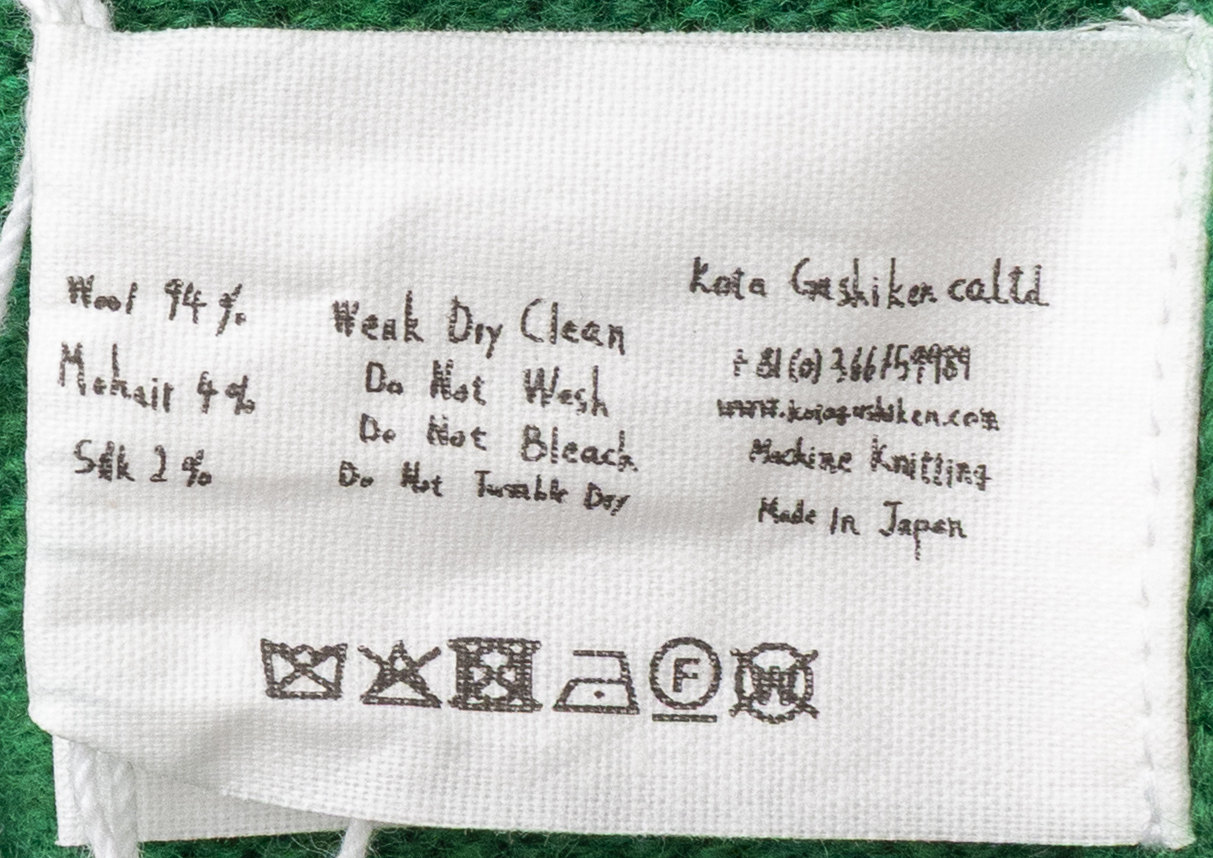 Wool 94 %
Mohair 4 %
Silk 2 %
Weak Dry Clean
Do Not Wash
Do Not Bleach
Do Not Tumble Dry
Kota Gushiken co.ltd
+81(0)366759989
www.kotagushiken.com
Machine Knitting
Made In Japan
F
W